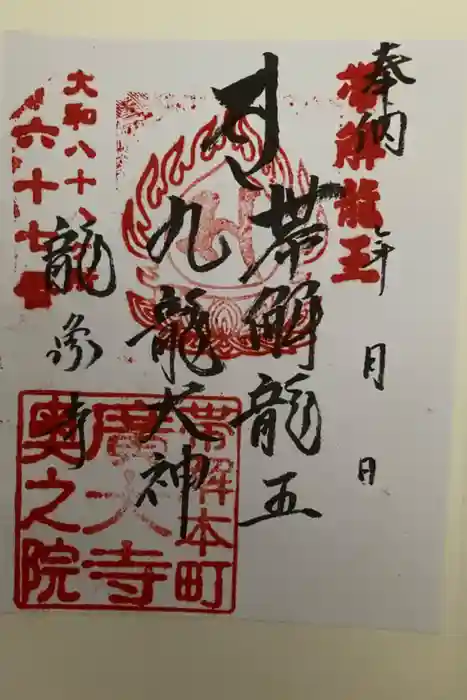 奉納 年 月 日
帯解龍王
帯解龍王
九龍大神
龍象寺
大和八十八
六十七番
帯解本町
廣大寺
奥之院